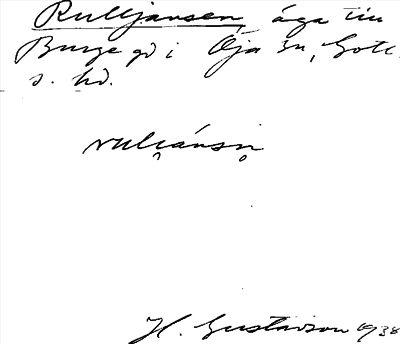 Rulljansen, äga till
Burge gd i Öja sn, Gotl.
s. hd.
rulia̯nsn̥
H. Gustavson 1938